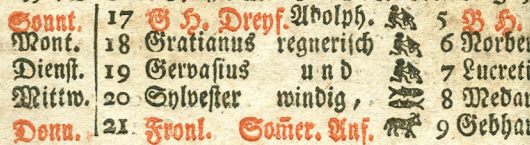 Sonnt. 17 G H. Dreyf. Adolph. 5 B H.
Mont. 18 Gratianus regnerisch 6 Norber
Dienst. 19 Gervasius und 7 Lucreti
Mittw. 20 Sylvester windig, 8 Medar
Donn. 21 Fronl. Som̃er. Anf. 9 Gebhar